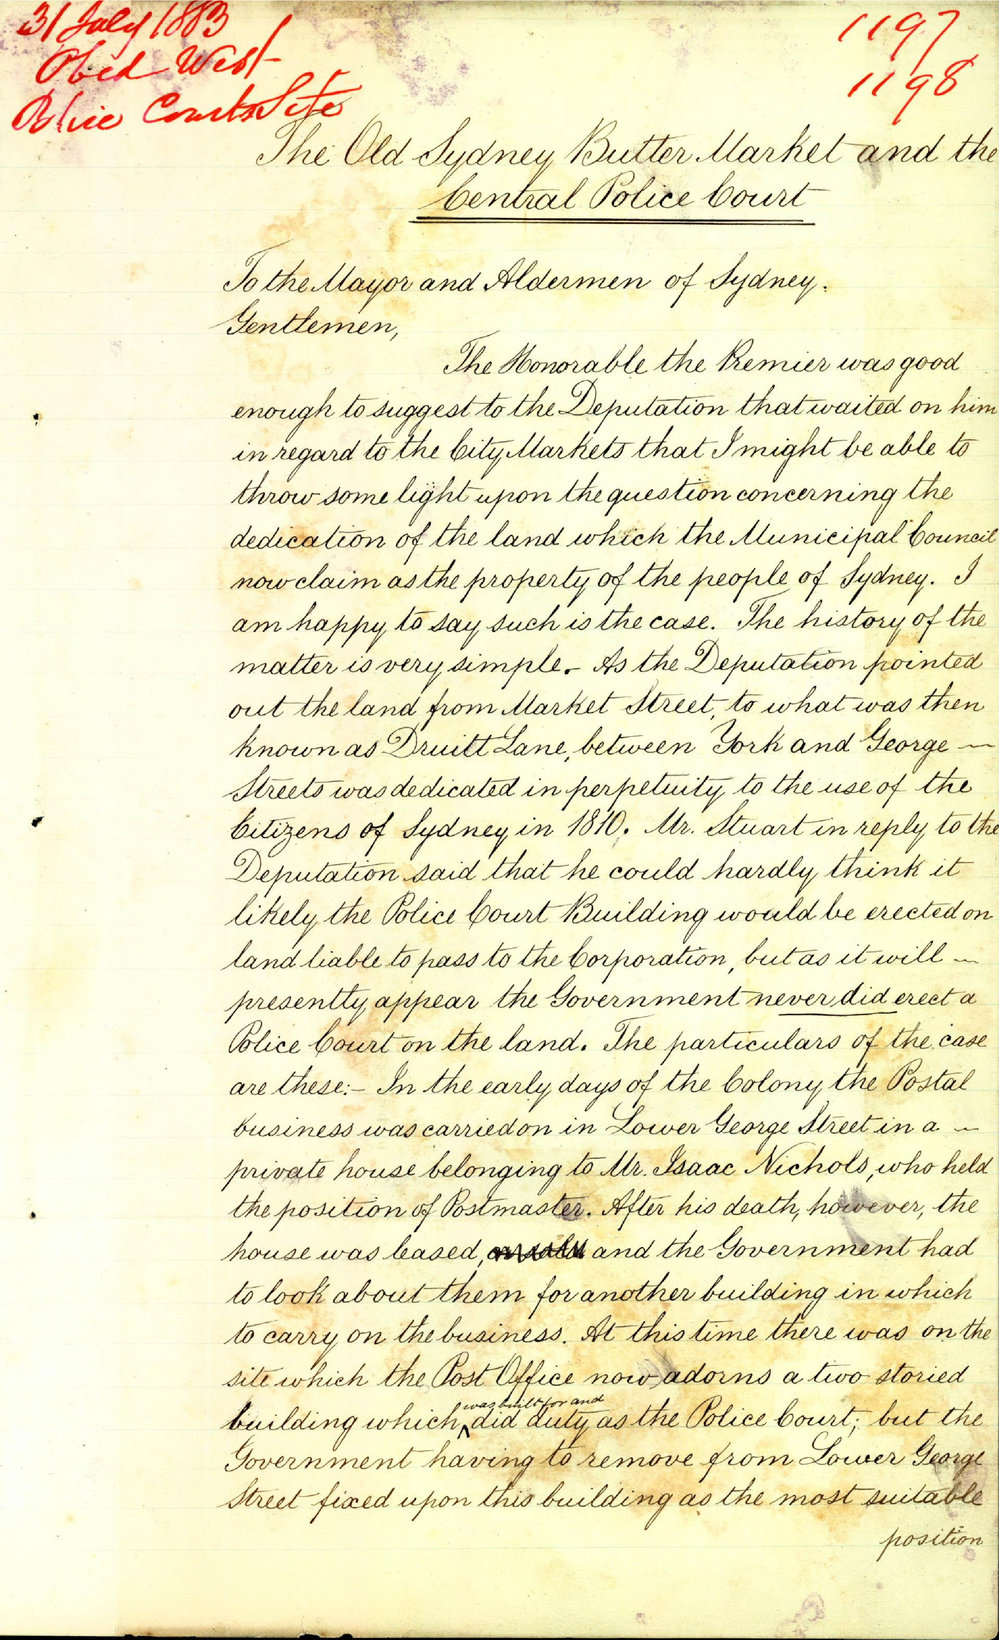 31 July 1883
Obed West
Police Courts Site
1197
1198
The Old Sydney Butter Market and the
Central Police Court
To the Mayor and Aldermen of Sydney.
Gentlemen,
The Honorable the Premier was good
enough to suggest to the Deputation that waited on him
in regard to the City Markets that I might be able to
throw some light upon the question concerning the
dedication of the land which the Municipal Council
now claim as the property of the people of Sydney. I
am happy to say such is the case. The history of the
matter is very simple. - As the Deputation pointed
out the land from Market Street, to what was then
known as Druitt Lane, between York and George —
Streets was dedicated in perpetuity to the use of the
Citizens of Sydney in 1810. Mr. Stuart in reply to the
Deputation said that he could hardly think it
likely the Police Court Building would be erected on
land liable to pass to the Corporation, but as it will —
presently appear the Government never did erect a
Police Court on the land. The particulars of the case
are these:- In the early days of the Colony the Postal
business was carried on in Lower George Street in a —
private house belonging to Mr. Isaac Nichols, who held
the position of Postmaster. After his death, however, the
house was leased, and the Government had
to look about them for another building in which
to carry on the business. At this time there was on the
site which the Post Office now adorns a two storied
was built for and
building which did duty as the Police Court; but the
Government having to remove from Lower George
Street fixed upon this building as the most suitable
position